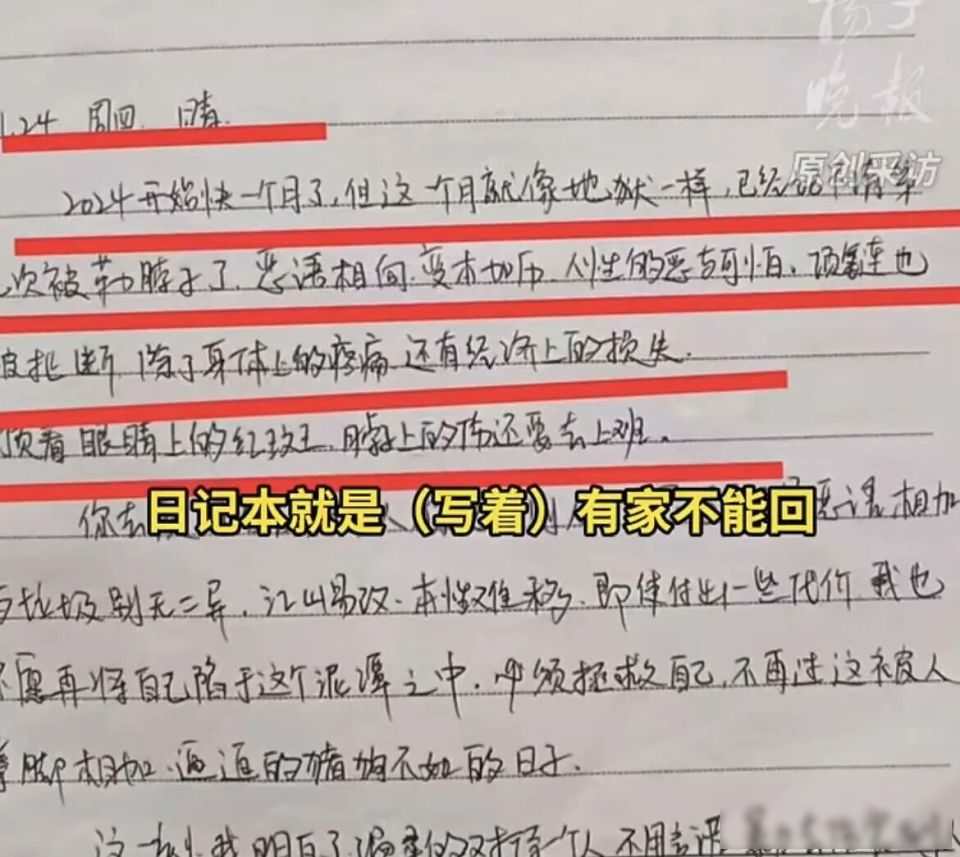 扬子
晚报
原创采访
1.24 周四 晴.
2024开始快一个月了,但这一个月就像地狱一样,已经
次被勒脖子了.恶语相向.变本加厉.人性的恶与可怕.项链也
被扯断 除了身体上的疼痛 还有经济上的损失.
顶着眼睛上的红斑,脖子上的伤还要去上班.
日记本就是（写着）有家不能回
你去 恶语相加
与垃圾别无二异,江山易改.本性难移.即使付出一些代价 我也
不愿再将自己陷于这个泥潭之中.必须拯救自己,不再过这被人
拳脚相加.逼迫的猪狗不如的日子.
这一刻我明白了 一个人 不用